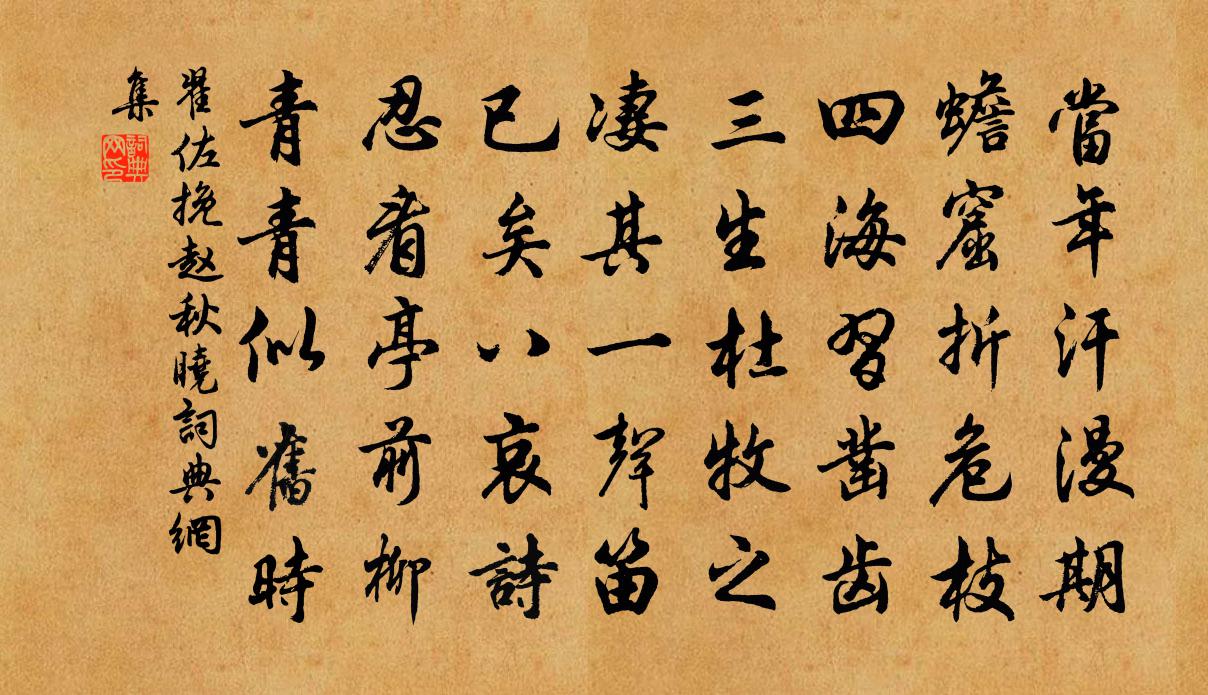 當年汗漫期
蟾窟折危枝
四海習凿齿
三生杜牧之
淒其一聲笛
已矣八哀詩
忍看亭前柳
青青似舊時
翟佐挽赵秋曉詞典網
集
詞典網印